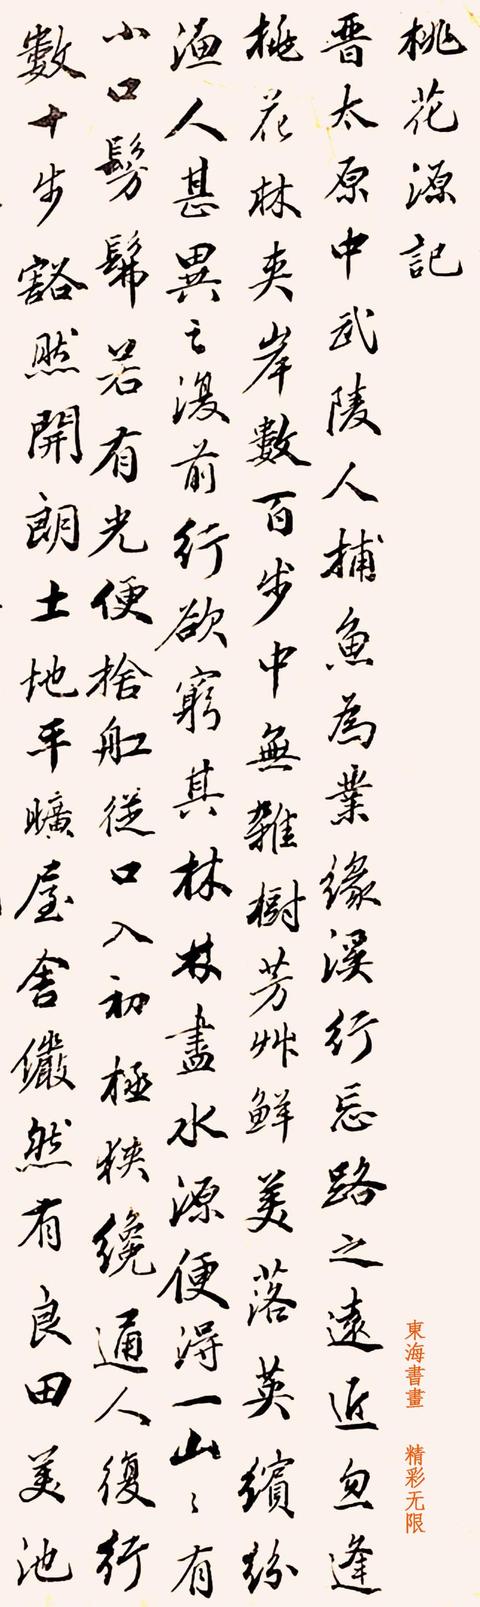 桃花源記
晋太原中武陵人捕魚為業緣溪行忘路之遠近忽逢
桃花林夾岸數百步中無雜樹芳艸鮮美落英繽紛
漁人甚異之復前行欲窮其林林盡水源便得一山〻有
小口髣髴若有光便捨舡從口入初極狹纔通人復行
數十步豁然開朗土地平曠屋舍儼然有良田美池
東海書畫 精彩无限